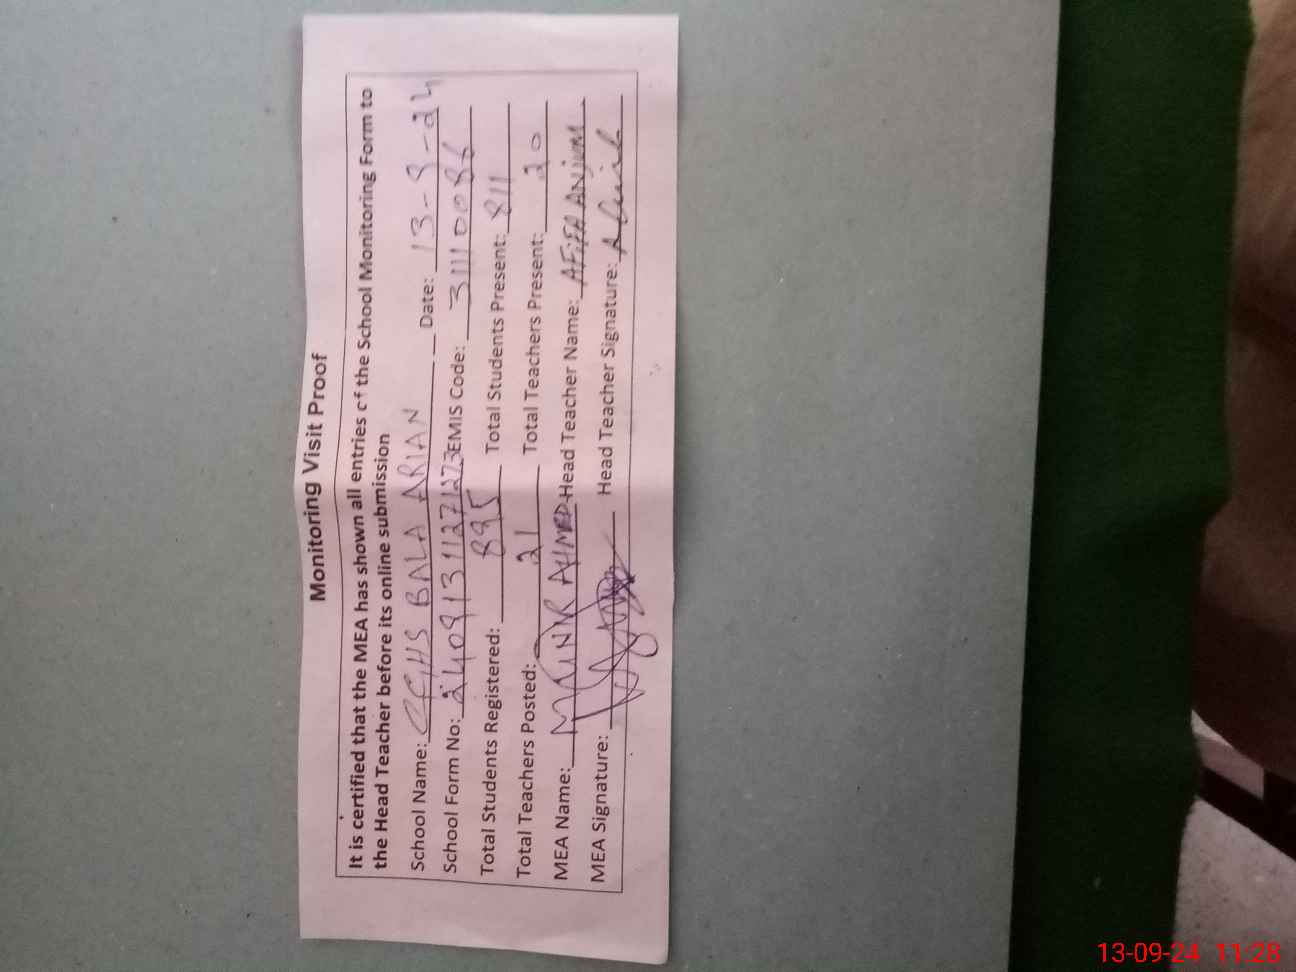 Monitoring Visit Proof
It is certified that the MEA has shown all entries of the School Monitoring Form to
the Head Teacher before its online submission
School Name: GGHS BALA ARIAN Date: 13-9-24
School Form No: 24091311271273 EMIS Code: 31110086
Total Students Registered: 895 Total Students Present: 811
Total Teachers Posted: 21 Total Teachers Present: 20
MEA Name: MUNIR AHMED Head Teacher Name: AFIFA ANJUM
MEA Signature: Head Teacher Signature:
13-09-24 11:28